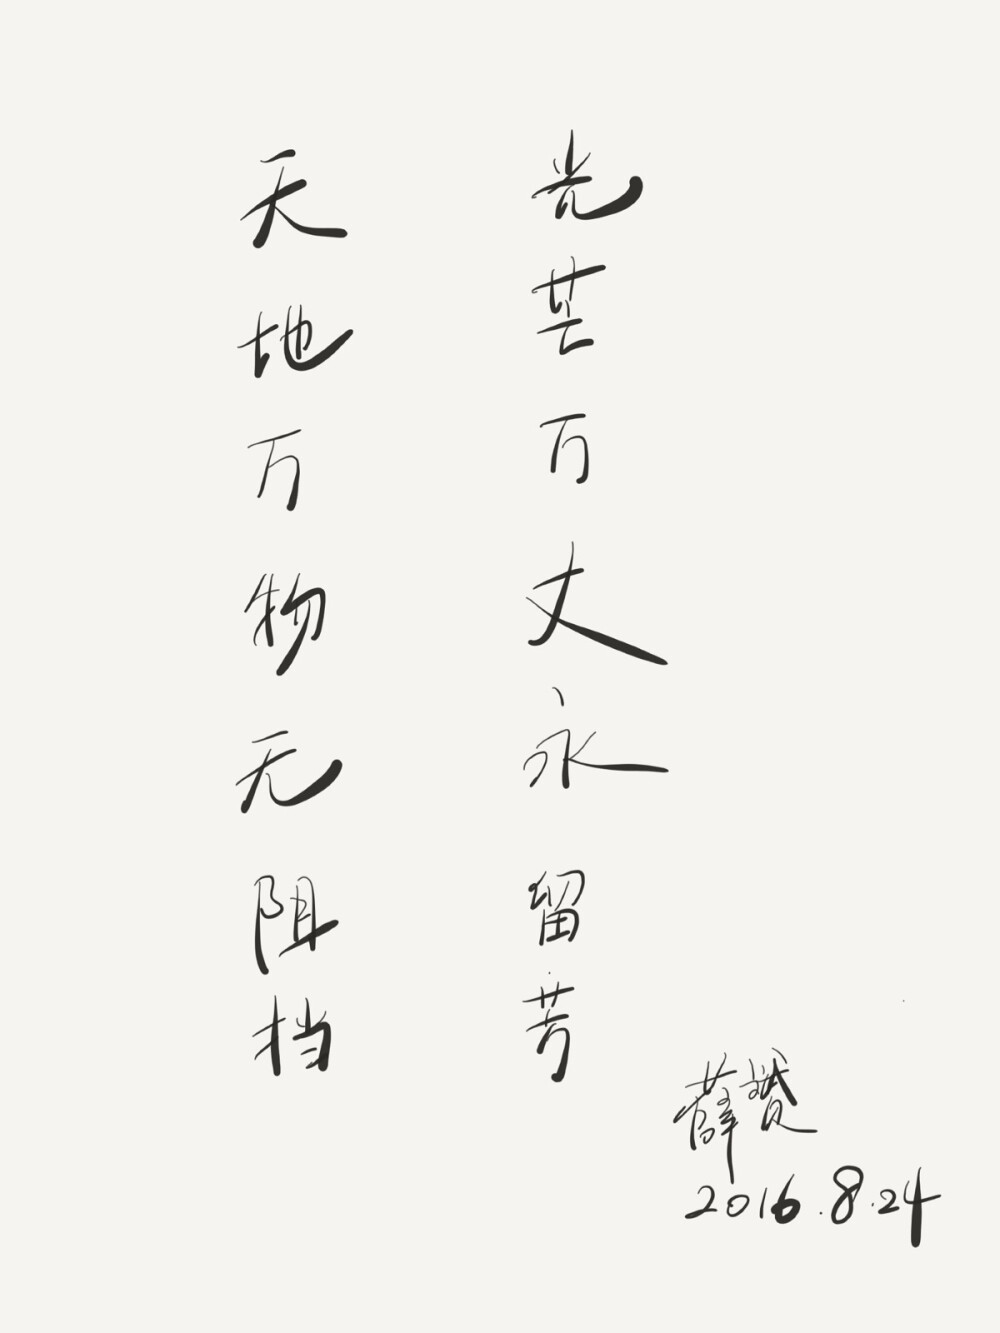 天地万物无阻挡
光芒万丈永留芳
薛赞
2016.8.24